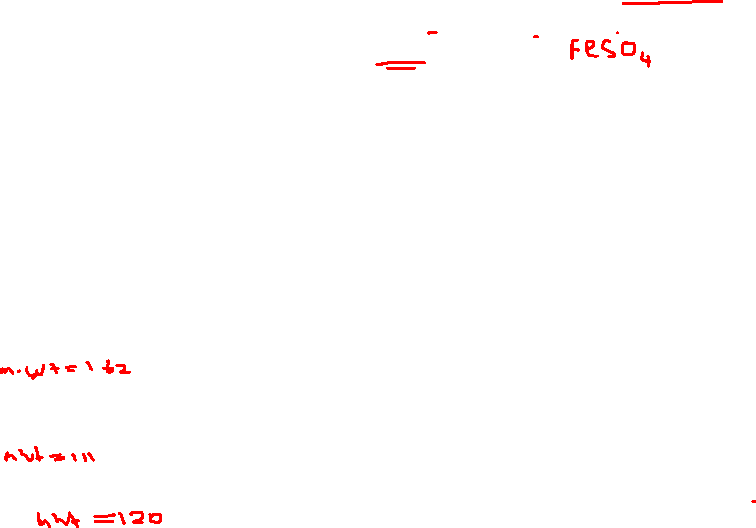 FeSO4
m.wt = 162
mwt = 111
mwt = 120